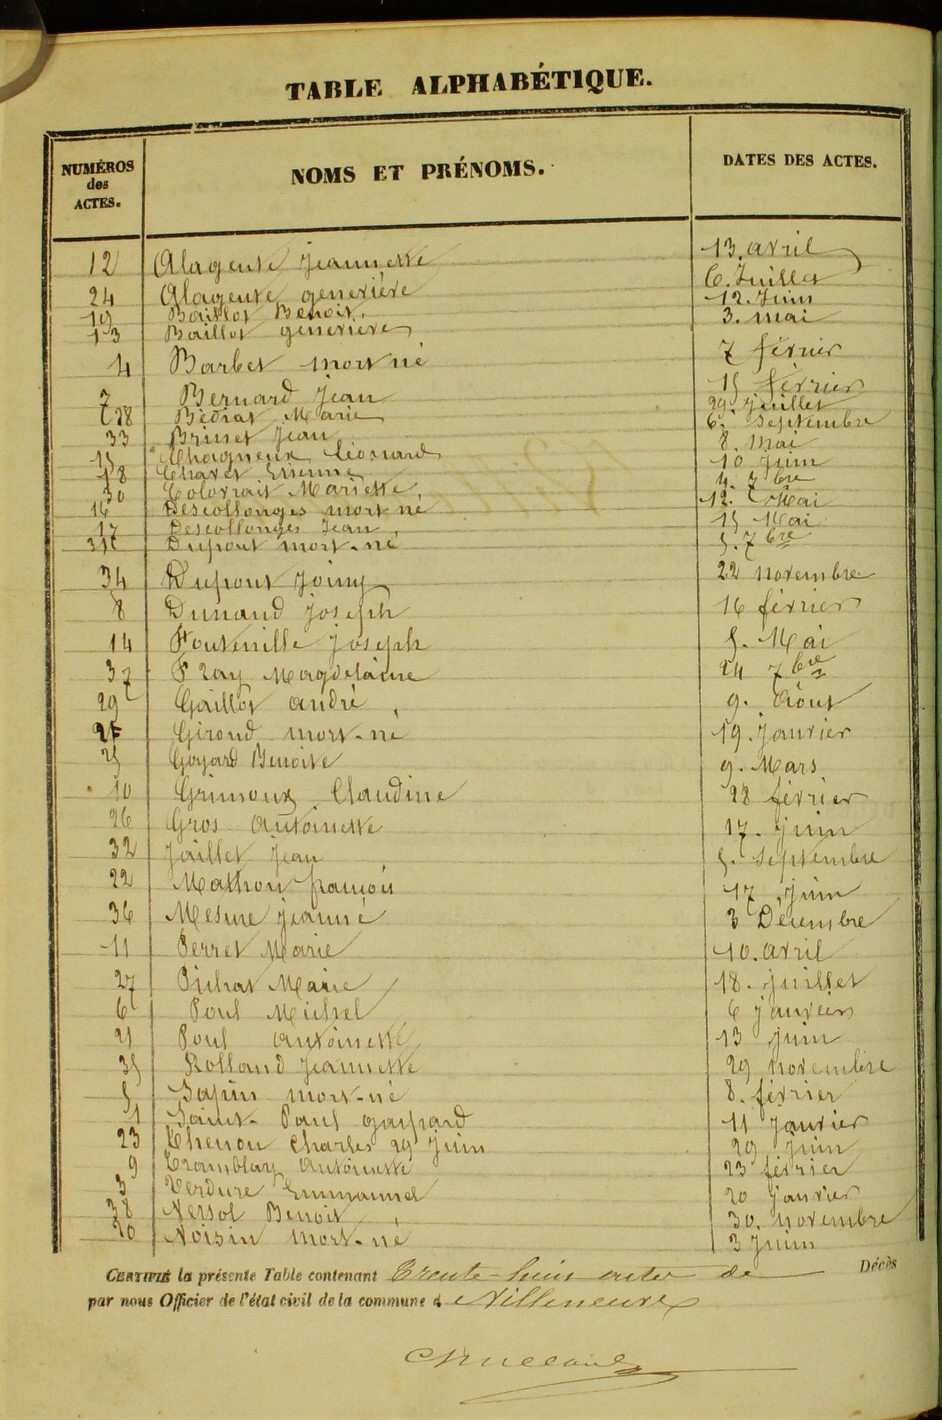 TABLE ALPHABÉTIQUE.
NUMÉROS des ACTES. NOMS ET PRÉNOMS. DATES DES ACTES.
12 Alagente Jeannette 13. avril
24 Alagente geneviève 6. Juillet
19 Baillot Benoit. 12. Juin
13 Baillot geneviève 3. mai
4 Barbet mort né 7 février
7 Bernard Jean 15 février
28 Marie 29. Juillet
33 Brunet Jean 6. Septembre
15 Chagneux Léonard 8. Mai
18 Charet Etienne 10 Juin
30 Mariette. 4. 7bre
16 Descollonges mort né 12. Mai
17 Descollonges Jean 15 Mai
31 Dupont mort-né 5. 7bre
34 Dupont Jenny 22 novembre
8 Dunand Joseph 16 février
14 Fontenille Joseph 5. Mai
37 Pray Magdelaine 24 7bre
29 Gaillot andré 9. Août
2 Girond mort-né 19. Janvier
25 Goyard Benoite 9. Mars
10 Grimoux Claudine 28 février
26 Gros Antoinette 17. Juin
32 Jaillet Jean 5. Septembre
22 Mathon françois 17 Juin
36 Mesure Jeanne 3 Décembre
11 Perret Marie 10. avril
27 Pichat Marie 18. Juillet
6 Pont Michel 6 Janvier
21 Pont Antoinette 13 Juin
35 Rolland Jeannette 29 novembre
5 Sapin mort-né 8. février
1 Saint-Paul gaspard 11 Janvier
23 Thenon Charles 29 Juin 29 Juin
9 Tramblay Antoinette 23 février
3 Verdure Emmanuel 20 Janvier
38 Versol Benoit 30. novembre
20 Voisin mort-né 3 Juin
CERTIFIÉ la présente Table contenant Trente-huit actes de Décès
par nous Officier de l'état civil de la commune d Villeneuve